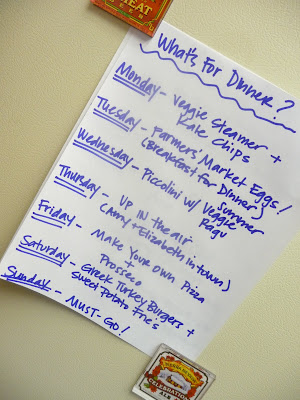 WHEAT
BEER
What's For Dinner?
Monday - Veggie Steamer +
Kale Chips
Tuesday - Farmers' Market Eggs!
(Breakfast for Dinner)
Wednesday - Piccolini w/ Summer
Veggie
Ragu
Thursday - Up in the air
(Amy + Elizabeth in town)
Friday - Make Your Own Pizza
Prosecco
Saturday - Greek Turkey Burgers +
Sweet Potato Fries
Sunday - MUST-GO!
SIERRA NEVADA
CELEBRATION
ALE